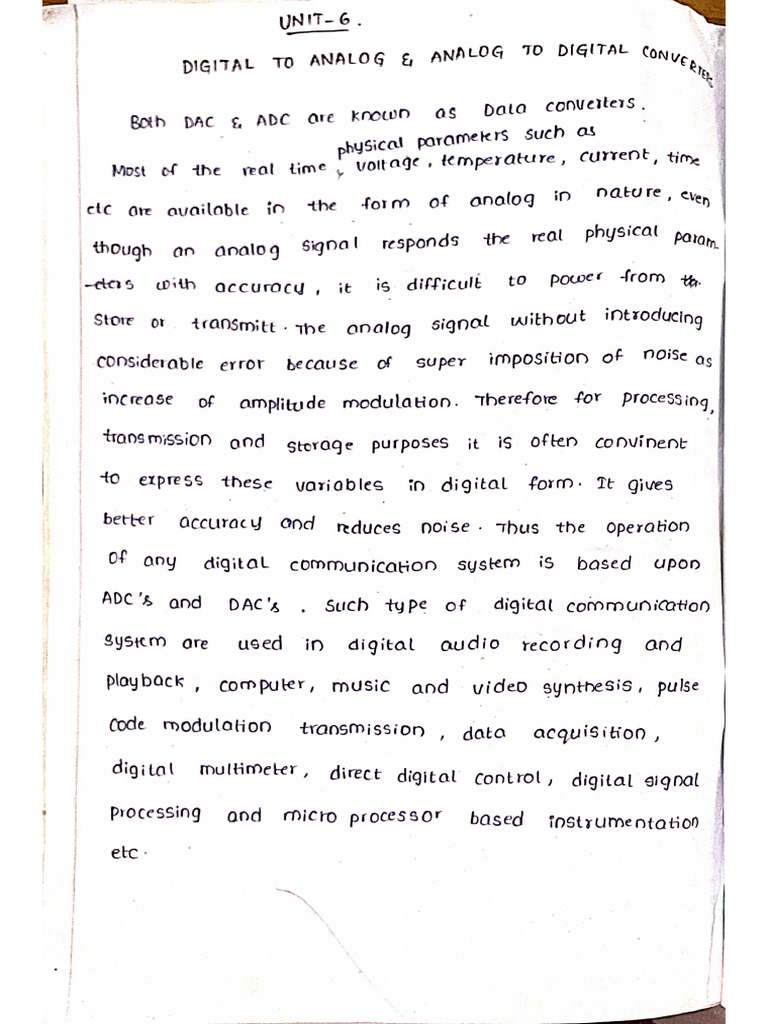 UNIT-6.
DIGITAL TO ANALOG & ANALOG TO DIGITAL CONVERTERS
Both DAC & ADC are known as Data converters.
physical parameters such as
Most of the real time voltage, temperature, current, time
etc are available in the form of analog in nature, even
though an analog signal responds the real physical param
-eters with accuracy, it is difficult to power from the
store or transmitt. The analog signal without introducing
considerable error because of super imposition of noise as
increase of amplitude modulation. Therefore for processing,
transmission and storage purposes it is often convinent
to express these variables in digital form. It gives
better accuracy and reduces noise. Thus the operation
of any digital communication system is based upon
ADC's and DAC's. Such type of digital communication
system are used in digital audio recording and
playback, computer, music and video synthesis, pulse
code modulation transmission, data acquisition,
digital multimeter, direct digital control, digital signal
processing and micro processor based instrumentation
etc.